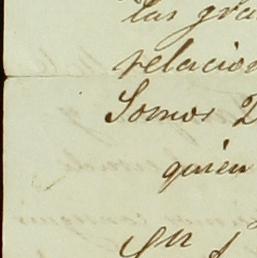 las gra
relacion
Somos D
quien